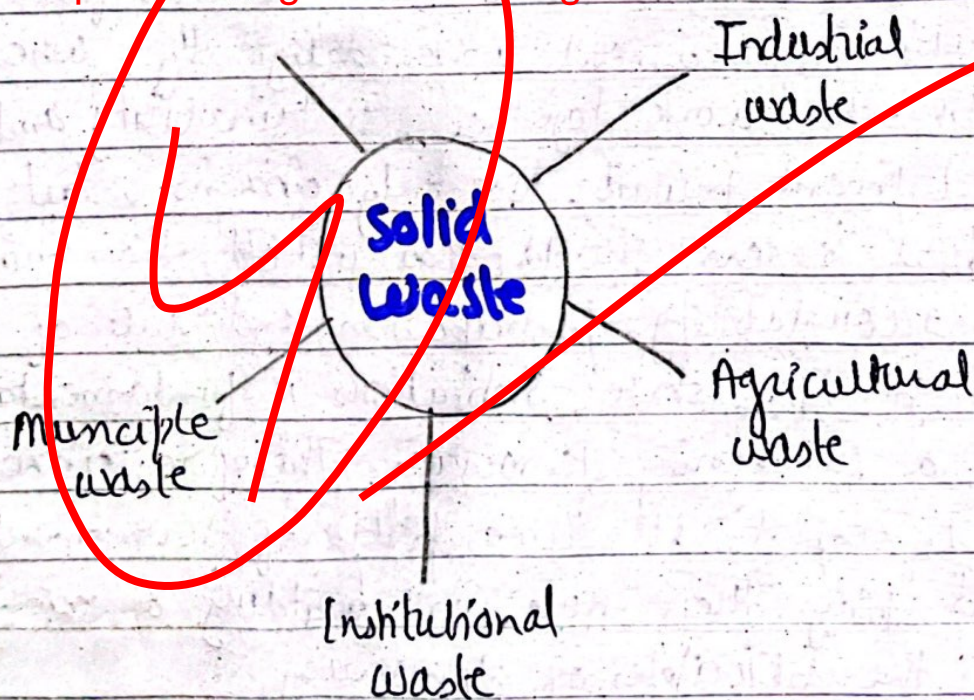 Industrial
waste
Solid
Waste
Agricultural
waste
Munciple
waste
Institutional
waste